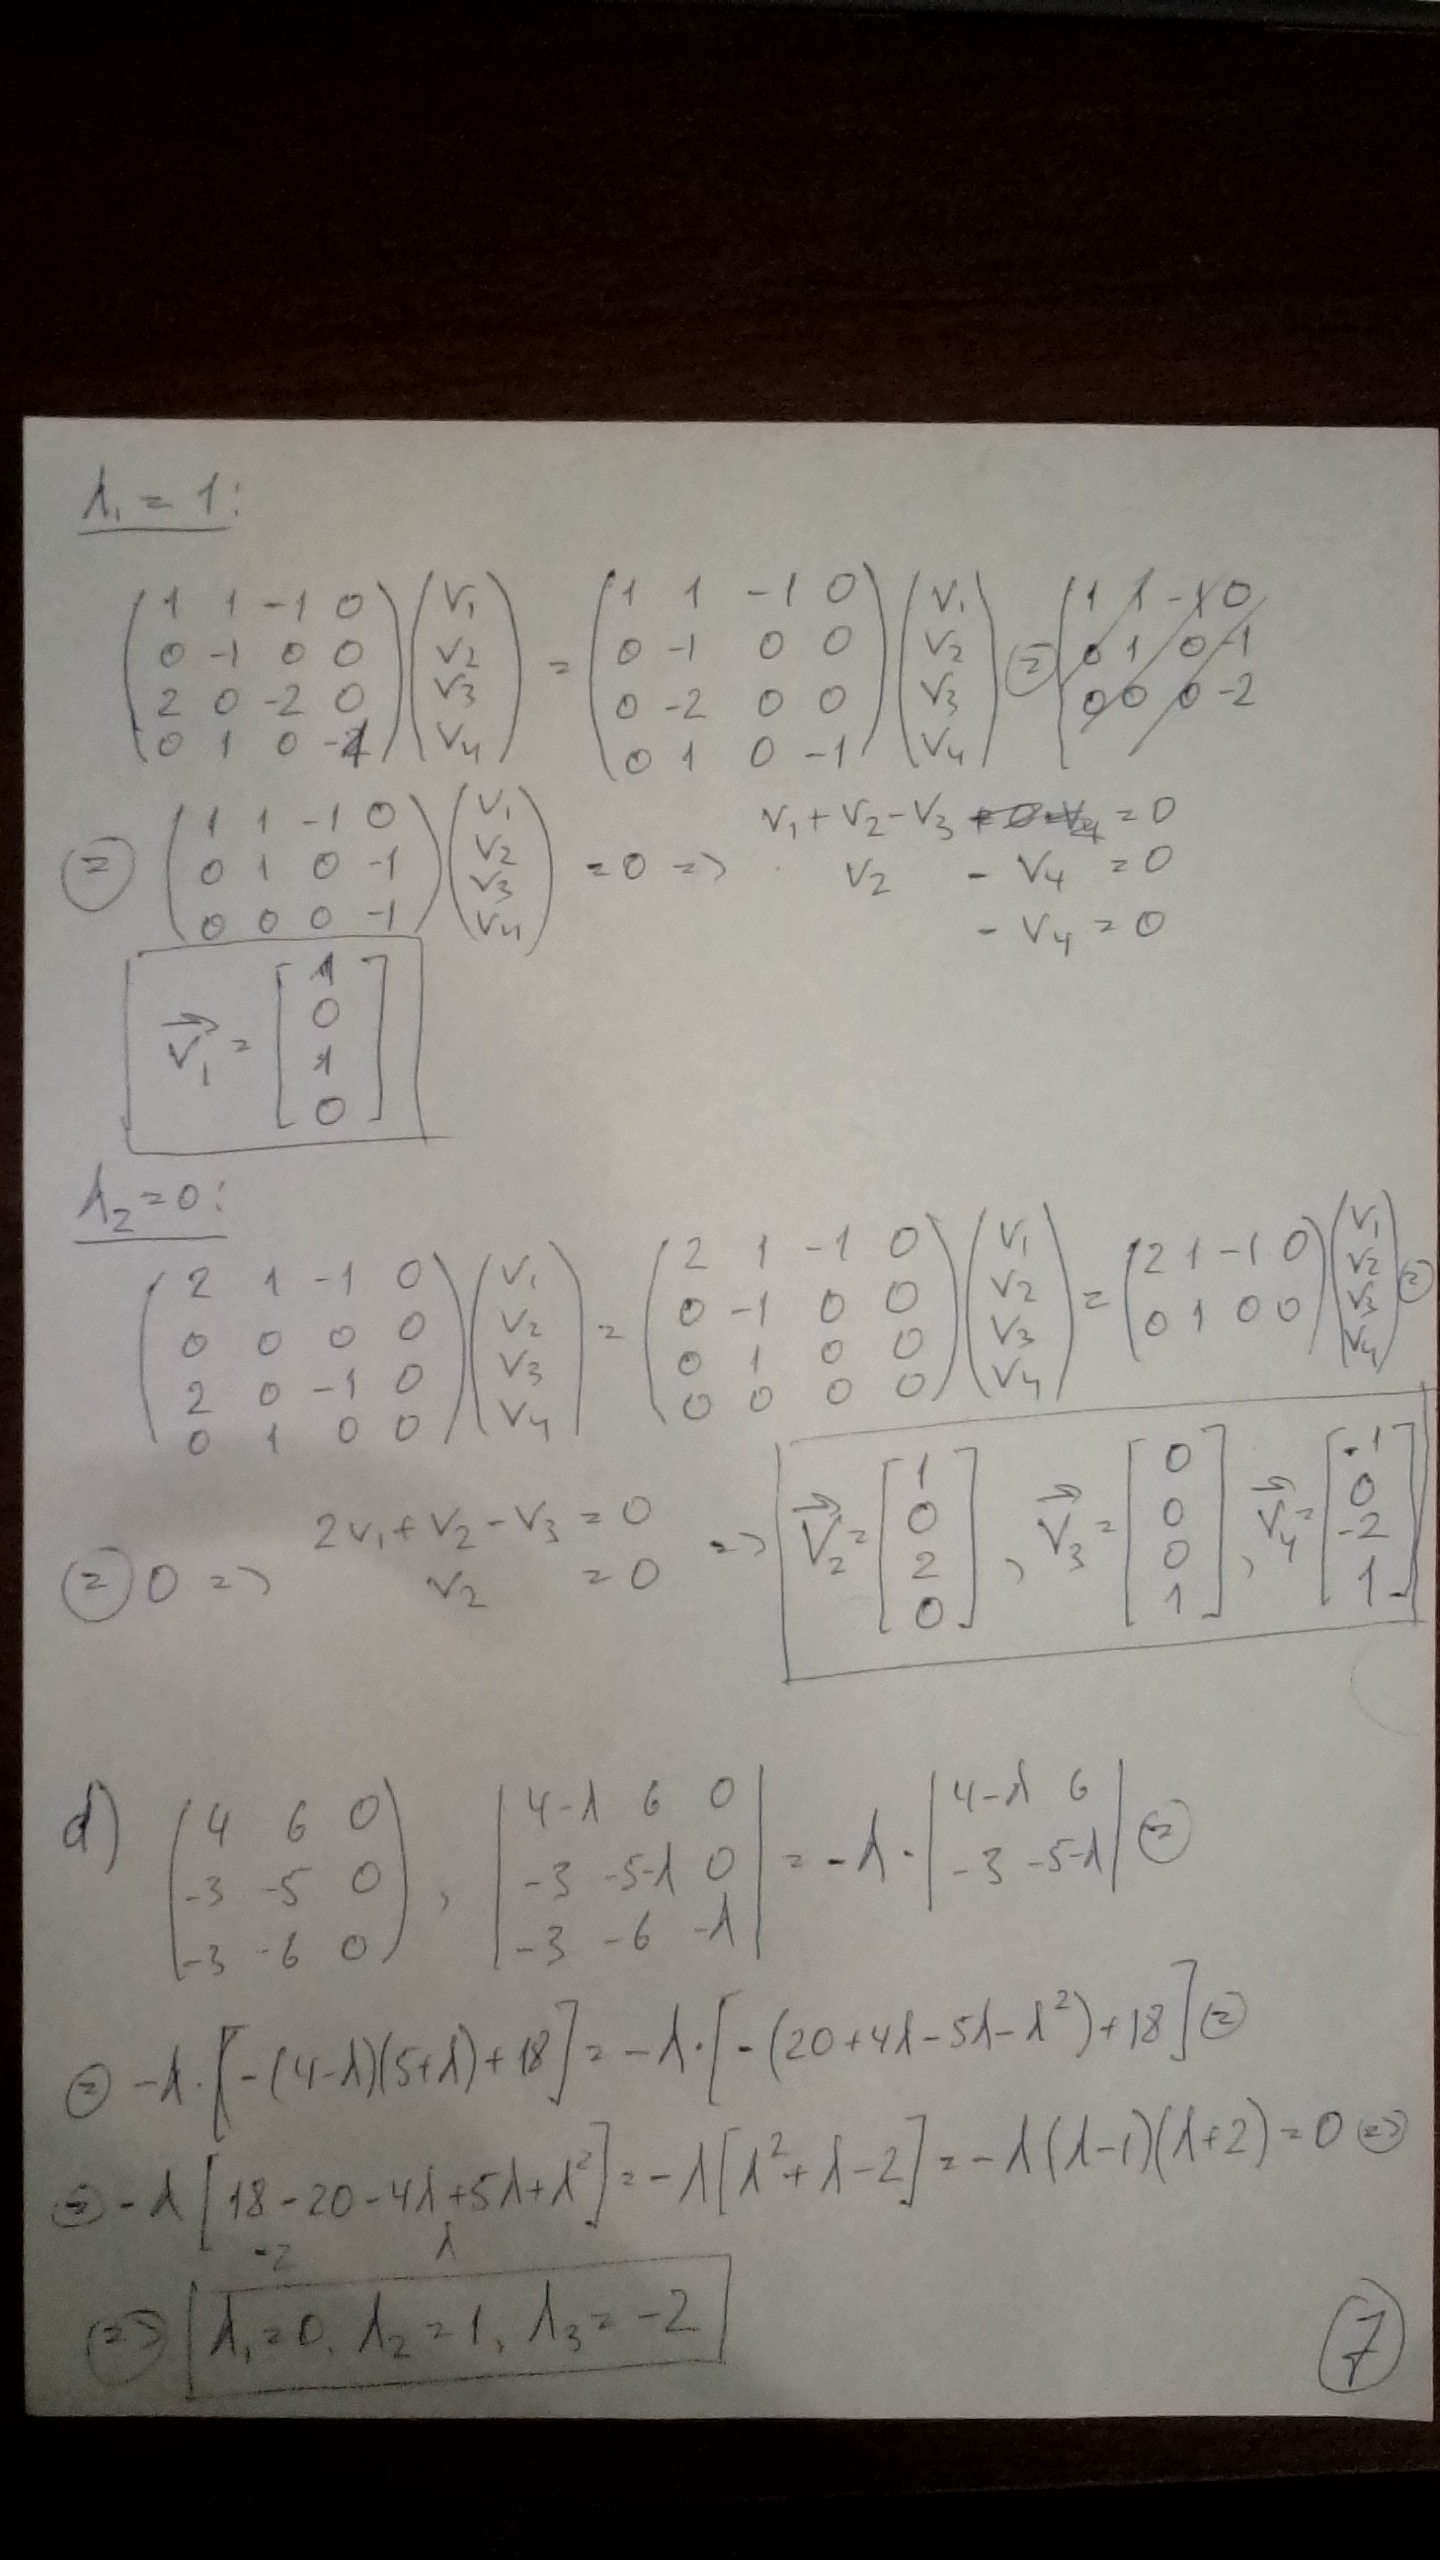 λ₁ = 1:
(1 1 -1 0; 0 -1 0 0; 2 0 -2 0; 0 1 0 -1)(v₁; v₂; v₃; v₄) = (1 1 -1 0; 0 -1 0 0; 0 -2 0 0; 0 1 0 -1)(v₁; v₂; v₃; v₄) = (1 1 -1 0; 0 1 0 -1; 0 0 0 -2
= (1 1 -1 0; 0 1 0 -1; 0 0 0 -1)(v₁; v₂; v₃; v₄) = 0 => v₁ + v₂ - v₃ = 0
v₂ - v₄ = 0
- v₄ = 0
v₁ = [1; 0; 1; 0]
λ₂ = 0:
(2 1 -1 0; 0 0 0 0; 2 0 -1 0; 0 1 0 0)(v₁; v₂; v₃; v₄) = (2 1 -1 0; 0 -1 0 0; 0 1 0 0; 0 0 0 0)(v₁; v₂; v₃; v₄) = (2 1 -1 0; 0 1 0 0)(v₁; v₂; v₃; v₄) =
= 0 => 2v₁ + v₂ - v₃ = 0
v₂ = 0
=> v₂ = [1; 0; 2; 0], v₃ = [0; 0; 0; 1], v₄ = [-1; 0; -2; 1]
d) (4 6 0; -3 -5 0; -3 -6 0), |4-λ 6 0; -3 -5-λ 0; -3 -6 -λ| = -λ · |4-λ 6; -3 -5-λ| =
= -λ · [-(4-λ)(5+λ) + 18] = -λ · [-(20 + 4λ - 5λ - λ²) + 18] =
= -λ [18 - 20 - 4λ + 5λ + λ²] = -λ [λ² + λ - 2] = -λ(λ-1)(λ+2) = 0 =>
-2 λ
=> λ₁ = 0, λ₂ = 1, λ₃ = -2
7